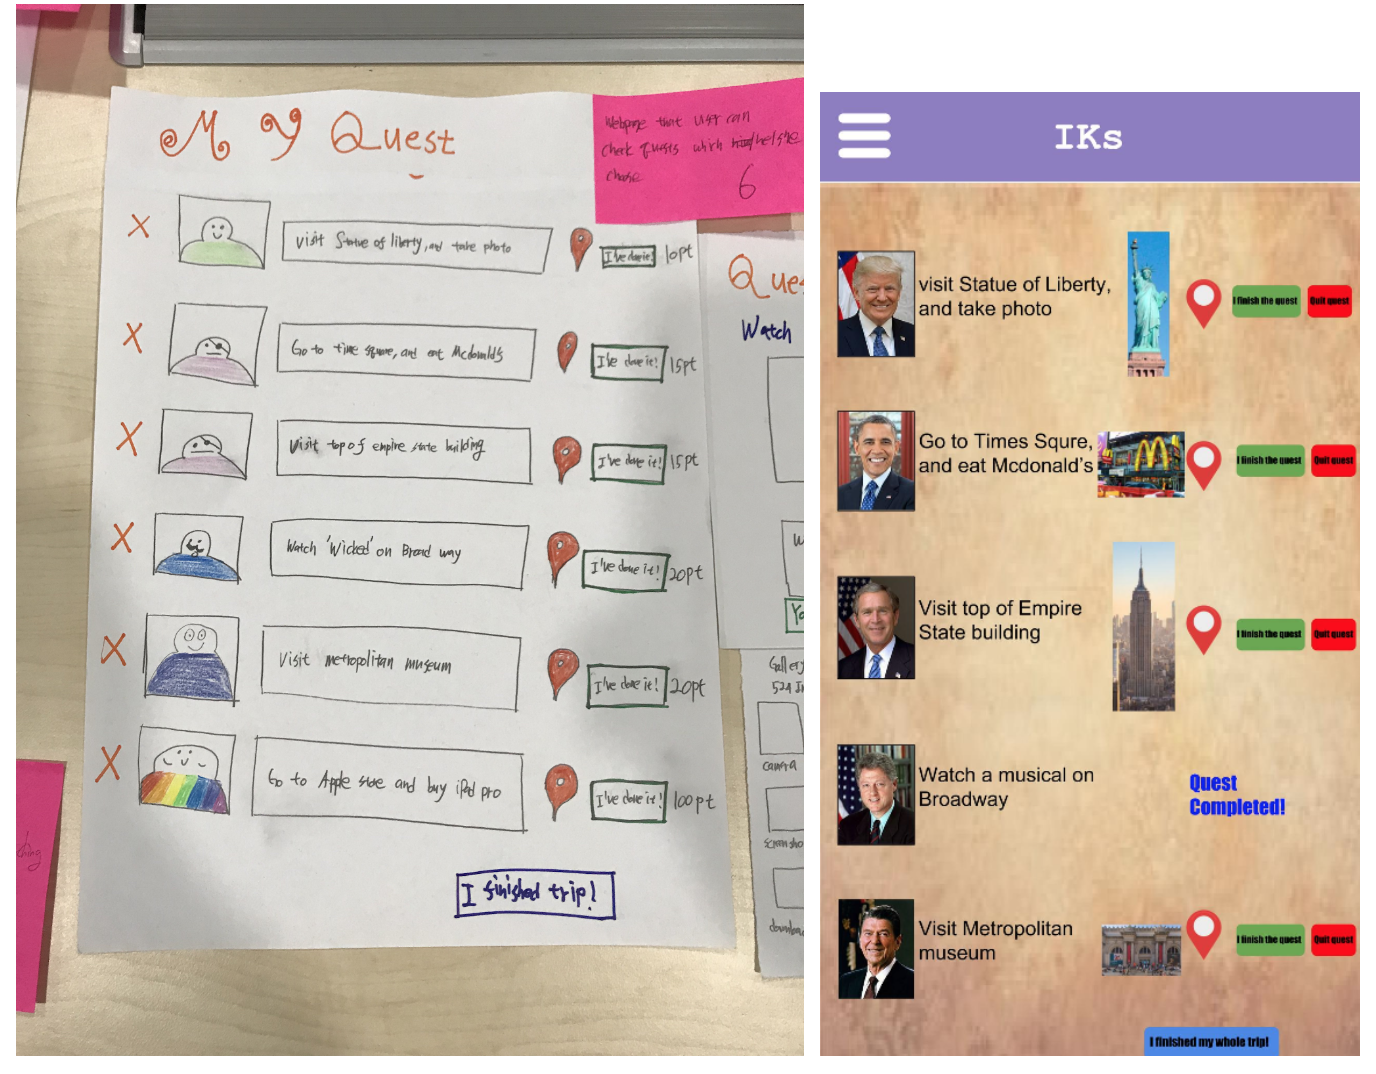 M Y Quest
Webpage that user can
check quests which he/she
chose
6
X
visit Statue of liberty, and take photo
I've done it!
10pt
X
Go to time square, and eat Mcdonald's
I've done it!
15pt
X
Visit top of empire state building
I've done it!
15pt
X
Watch 'Wicked' on Broad way
I've done it!
20pt
X
Visit metropolitan museum
I've done it!
20pt
X
Go to Apple store and buy iPad pro
I've done it!
100pt
I finished trip!
Ques
Watch
W
Yo
Gallery
camera
ching
IKs
visit Statue of Liberty,
and take photo
I finish the quest
Quit quest
Go to Times Squre,
and eat Mcdonald's
I finish the quest
Quit quest
Visit top of Empire
State building
I finish the quest
Quit quest
Watch a musical on
Broadway
Quest
Completed!
Visit Metropolitan
museum
I finish the quest
Quit quest
I finished my whole trip!